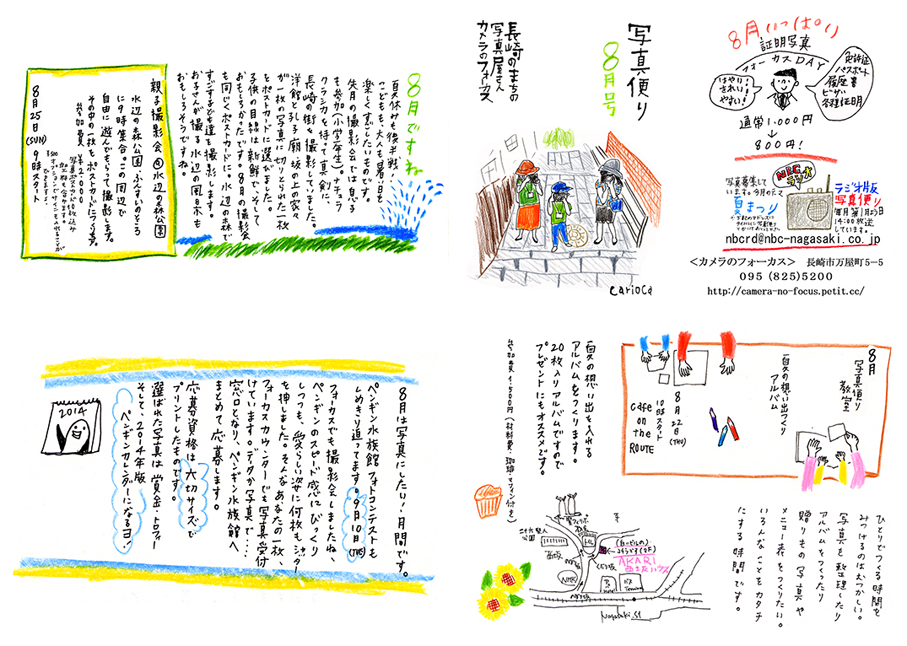 写真便り
8月号
長崎のまちの
写真屋さん
カメラのフォーカス
carioca
8月いっぱい
証明写真
フォーカスDAY
はやい!
きれい
やすい!
免許証
パスポート
履歴書
ビザ
各種証明
通常1,000円
↓
800円!
NBCラジオ
ラジオ版
写真便り
14:00放送
しています。
写真募集して
います。今月のテーマ
夏まつり
nbcrd@nbc-nagasaki.co.jp
<カメラのフォーカス> 長崎市万屋町5−5
095 (825)5200
http://camera-no-focus.petit.cc/
8月ですね
夏休みも後半戦!
こどもも、大人も、暑い日を
楽しくすごしたいものです。
先月の撮影会では息子
も参加(小学2年生)。チェッ
クランキを持って真剣に
長崎の街を撮影していました。
洋館、孔子廟、坂の上の家々
が一枚の写真に切りとられた一枚
をポストカードに選びました。
子供の目線は新鮮で、そして
おもしろかった。8月の撮影会
も同じくポストカードに。水辺の森で
すごす子ども達を撮影します。
お子さんが撮る水辺の風景も
おもしろそうですね。
親子撮影会 in 水辺の森公園
水辺の森公園、ふんすいのところ
に9時集合。この周辺で
自由に遊んでもらって撮影します。
その中の一枚をポストカードにつくります。
参加費 ¥2,000
8月25日(SUN) 9時スタート
8月は写真にしたり!月間です。
ペンギン水族館フォトコンテストも
しめきり迫ってます。9月10日(TUE)
フォーカスでも撮影会しましたね、
ペンギンのスピード感にびっくり
しつつも、愛らしい姿に何枚もシャッター
を押しました。そんな、あなたの一枚、
フォーカスカウンターでも写真受付
けています。デジカメ写真で…
窓口となり、ペンギン水族館へ
まとめて応募します。
応募資格は六切サイズで
プリントしたものです。
選ばれた写真は賞金・トロフィー
そして、2014年版
ペンギンカレンダーになるヨ!
2014
8月
写真便り
教室
夏の想い出づくり
アルバム
8月22日(THU)
10:30スタート
cafe
on
the
ROUTE
夏の想い出を入れる
アルバムをつくります。
20枚入りアルバムですので
プレゼントにもオススメです。
参加費 1,500円(材料費・珈琲・マフィン付き)
ひとりでつくる時間を
みつけるのはむつかしい。
写真を整理したり
アルバムをつくったり
贈りもの写真や
メニュー表をつくりたい。
いろんなことをカタチ
にする時間です。
二十六聖人
公園
西坂
NHK
AKARI
西坂ハウス
Nagasaki St